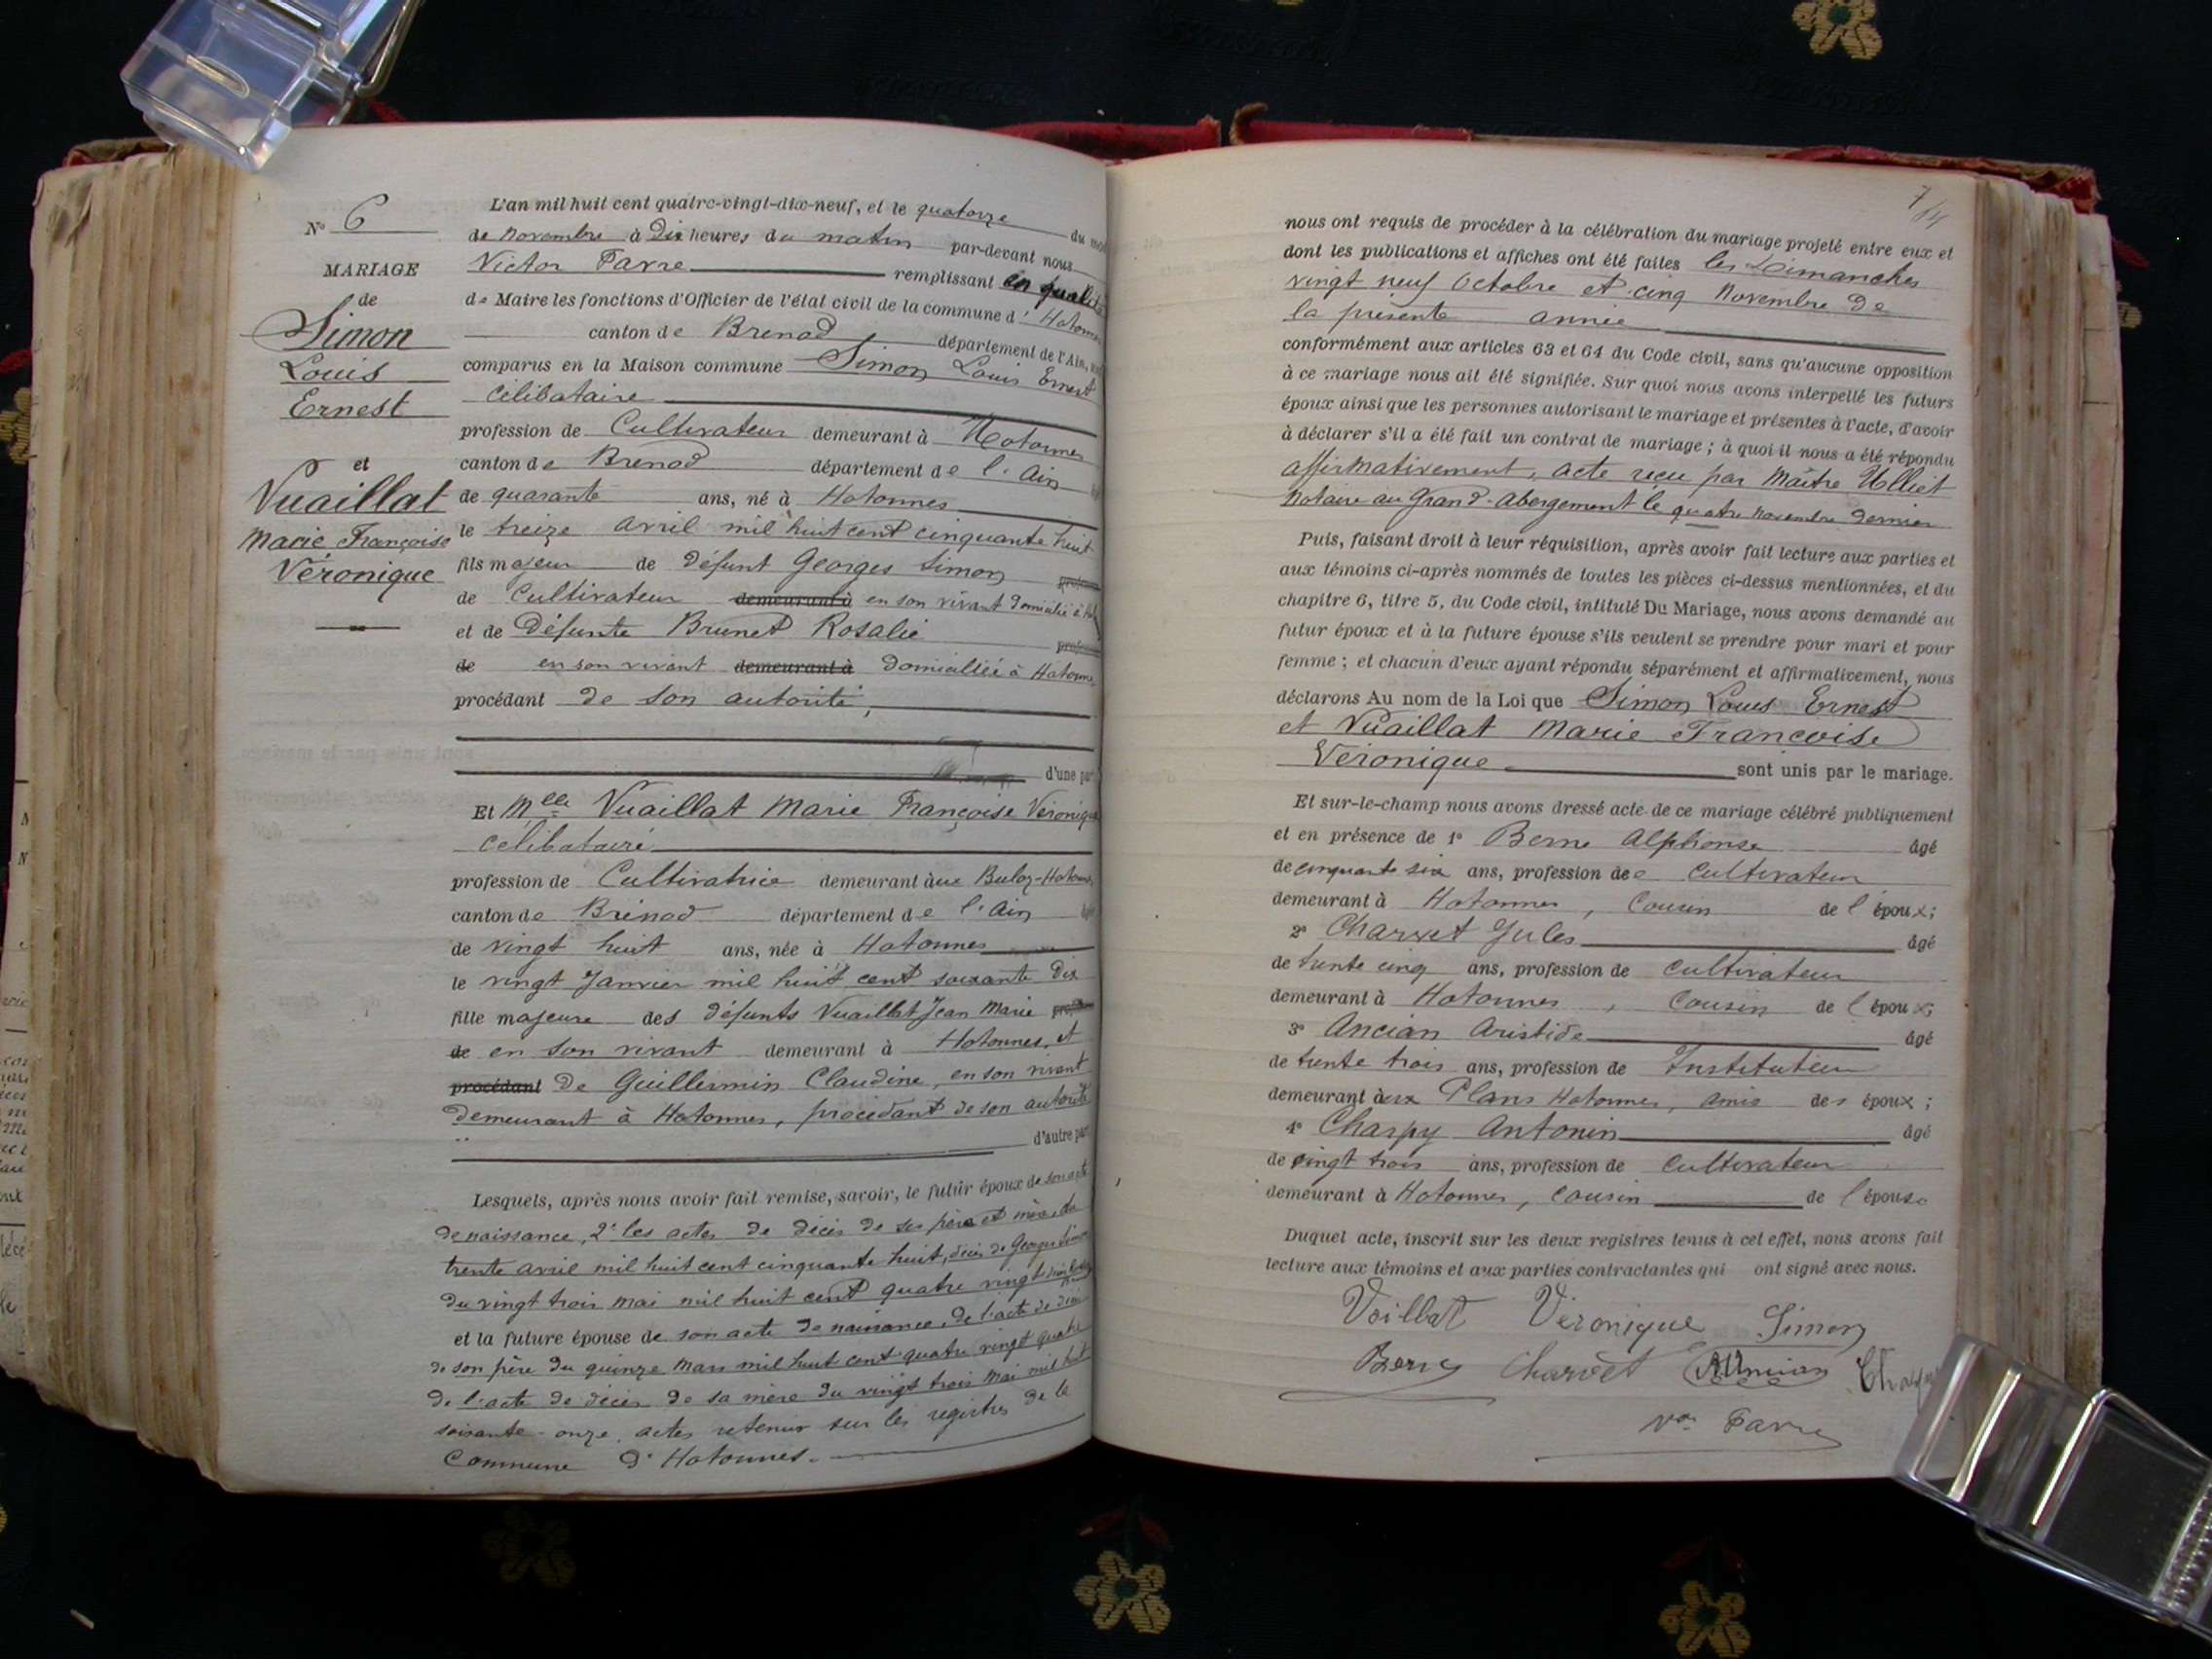 N° 6
MARIAGE
de
Simon
Louis
Ernest
et
Vuaillat
Marie Françoise
Véronique
L'an mil huit cent quatre-vingt-dix-neuf, et le quatorze du mo
de Novembre à Dix heures du matin par-devant nous
Victor Favre remplissant en qualité
de Maire les fonctions d'Officier de l'état civil de la commune d' Hotonnes
canton de Brenod département de l'Ain,
comparus en la Maison commune Simon Louis Ernest
Célibataire
profession de Cultivateur demeurant à Hotonnes
canton de Brenod département de l'Ain
de quarante ans, né à Hotonnes
le treize avril mil huit cent cinquante huit
fils majeur de défunt Georges Simon
de Cultivateur demeurant à en son vivant domicilié à
et de Défunte Brunet Rosalie
de en son vivant demeurant à domiciliée à Hotonnes
procédant de son autorité,
d'une part
Et Mlle Vuaillat Marie Françoise Véronique
Célibataire
profession de Cultivatrice demeurant aux Buloz-Hotonnes
canton de Brénod département de l'Ain
de vingt huit ans, née à Hotonnes
le vingt Janvier mil huit cent soixante dix
fille majeure des défunts Vuaillat Jean Marie
de en son vivant demeurant à Hotonnes, et
procédant de Guillermin Claudine, en son vivant
demeurant à Hotonnes, procédant de son autorité
d'autre part
Lesquels, après nous avoir fait remise, savoir, le futur époux de son acte
de naissance, 2° les actes de décès de ses père et mère, du
trente avril mil huit cent cinquante huit, décès de Georges Simon
du vingt trois mai mil huit cent quatre vingt
et la future épouse de son acte de naissance, de l'acte de décès
de son père du quinze mars mil huit cent quatre vingt quatre
de l'acte de décès de sa mère du vingt trois mai mil huit
soixante-onze, actes retenus sur les registres de la
Commune d'Hotonnes.
7
nous ont requis de procéder à la célébration du mariage projeté entre eux et
dont les publications et affiches ont été faites les Dimanches
vingt neuf Octobre et cinq Novembre de
la présente année
conformément aux articles 63 et 64 du Code civil, sans qu'aucune opposition
à ce mariage nous ait été signifiée. Sur quoi nous avons interpellé les futurs
époux ainsi que les personnes autorisant le mariage et présentes à l'acte, d'avoir
à déclarer s'il a été fait un contrat de mariage ; à quoi il nous a été répondu
affirmativement, acte reçu par Maître Ulliet
Notaire au Grand-Abergement le quatre novembre dernier
Puis, faisant droit à leur réquisition, après avoir fait lecture aux parties et
aux témoins ci-après nommés de toutes les pièces ci-dessus mentionnées, et du
chapitre 6, titre 5, du Code civil, intitulé Du Mariage, nous avons demandé au
futur époux et à la future épouse s'ils veulent se prendre pour mari et pour
femme ; et chacun d'eux ayant répondu séparément et affirmativement, nous
déclarons Au nom de la Loi que Simon Louis Ernest
et Vuaillat Marie Françoise
Véronique sont unis par le mariage.
Et sur-le-champ nous avons dressé acte de ce mariage célébré publiquement
et en présence de 1° Berne Alphonse âgé
de cinquante six ans, profession de Cultivateur
demeurant à Hotonnes, Cousin de l'époux;
2° Charvet Jules âgé
de trente cinq ans, profession de Cultivateur
demeurant à Hotonnes, Cousin de l'époux;
3° Ancian Aristide âgé
de trente trois ans, profession de Instituteur
demeurant aux Plans Hotonnes, amis des époux ;
4° Charpy Antonin âgé
de vingt trois ans, profession de Cultivateur
demeurant à Hotonnes, Cousin de l'épouse
Duquel acte, inscrit sur les deux registres tenus à cet effet, nous avons fait
lecture aux témoins et aux parties contractantes qui ont signé avec nous.
Voillat Véronique Simon
Berne Charvet Ancian
Vor Favre